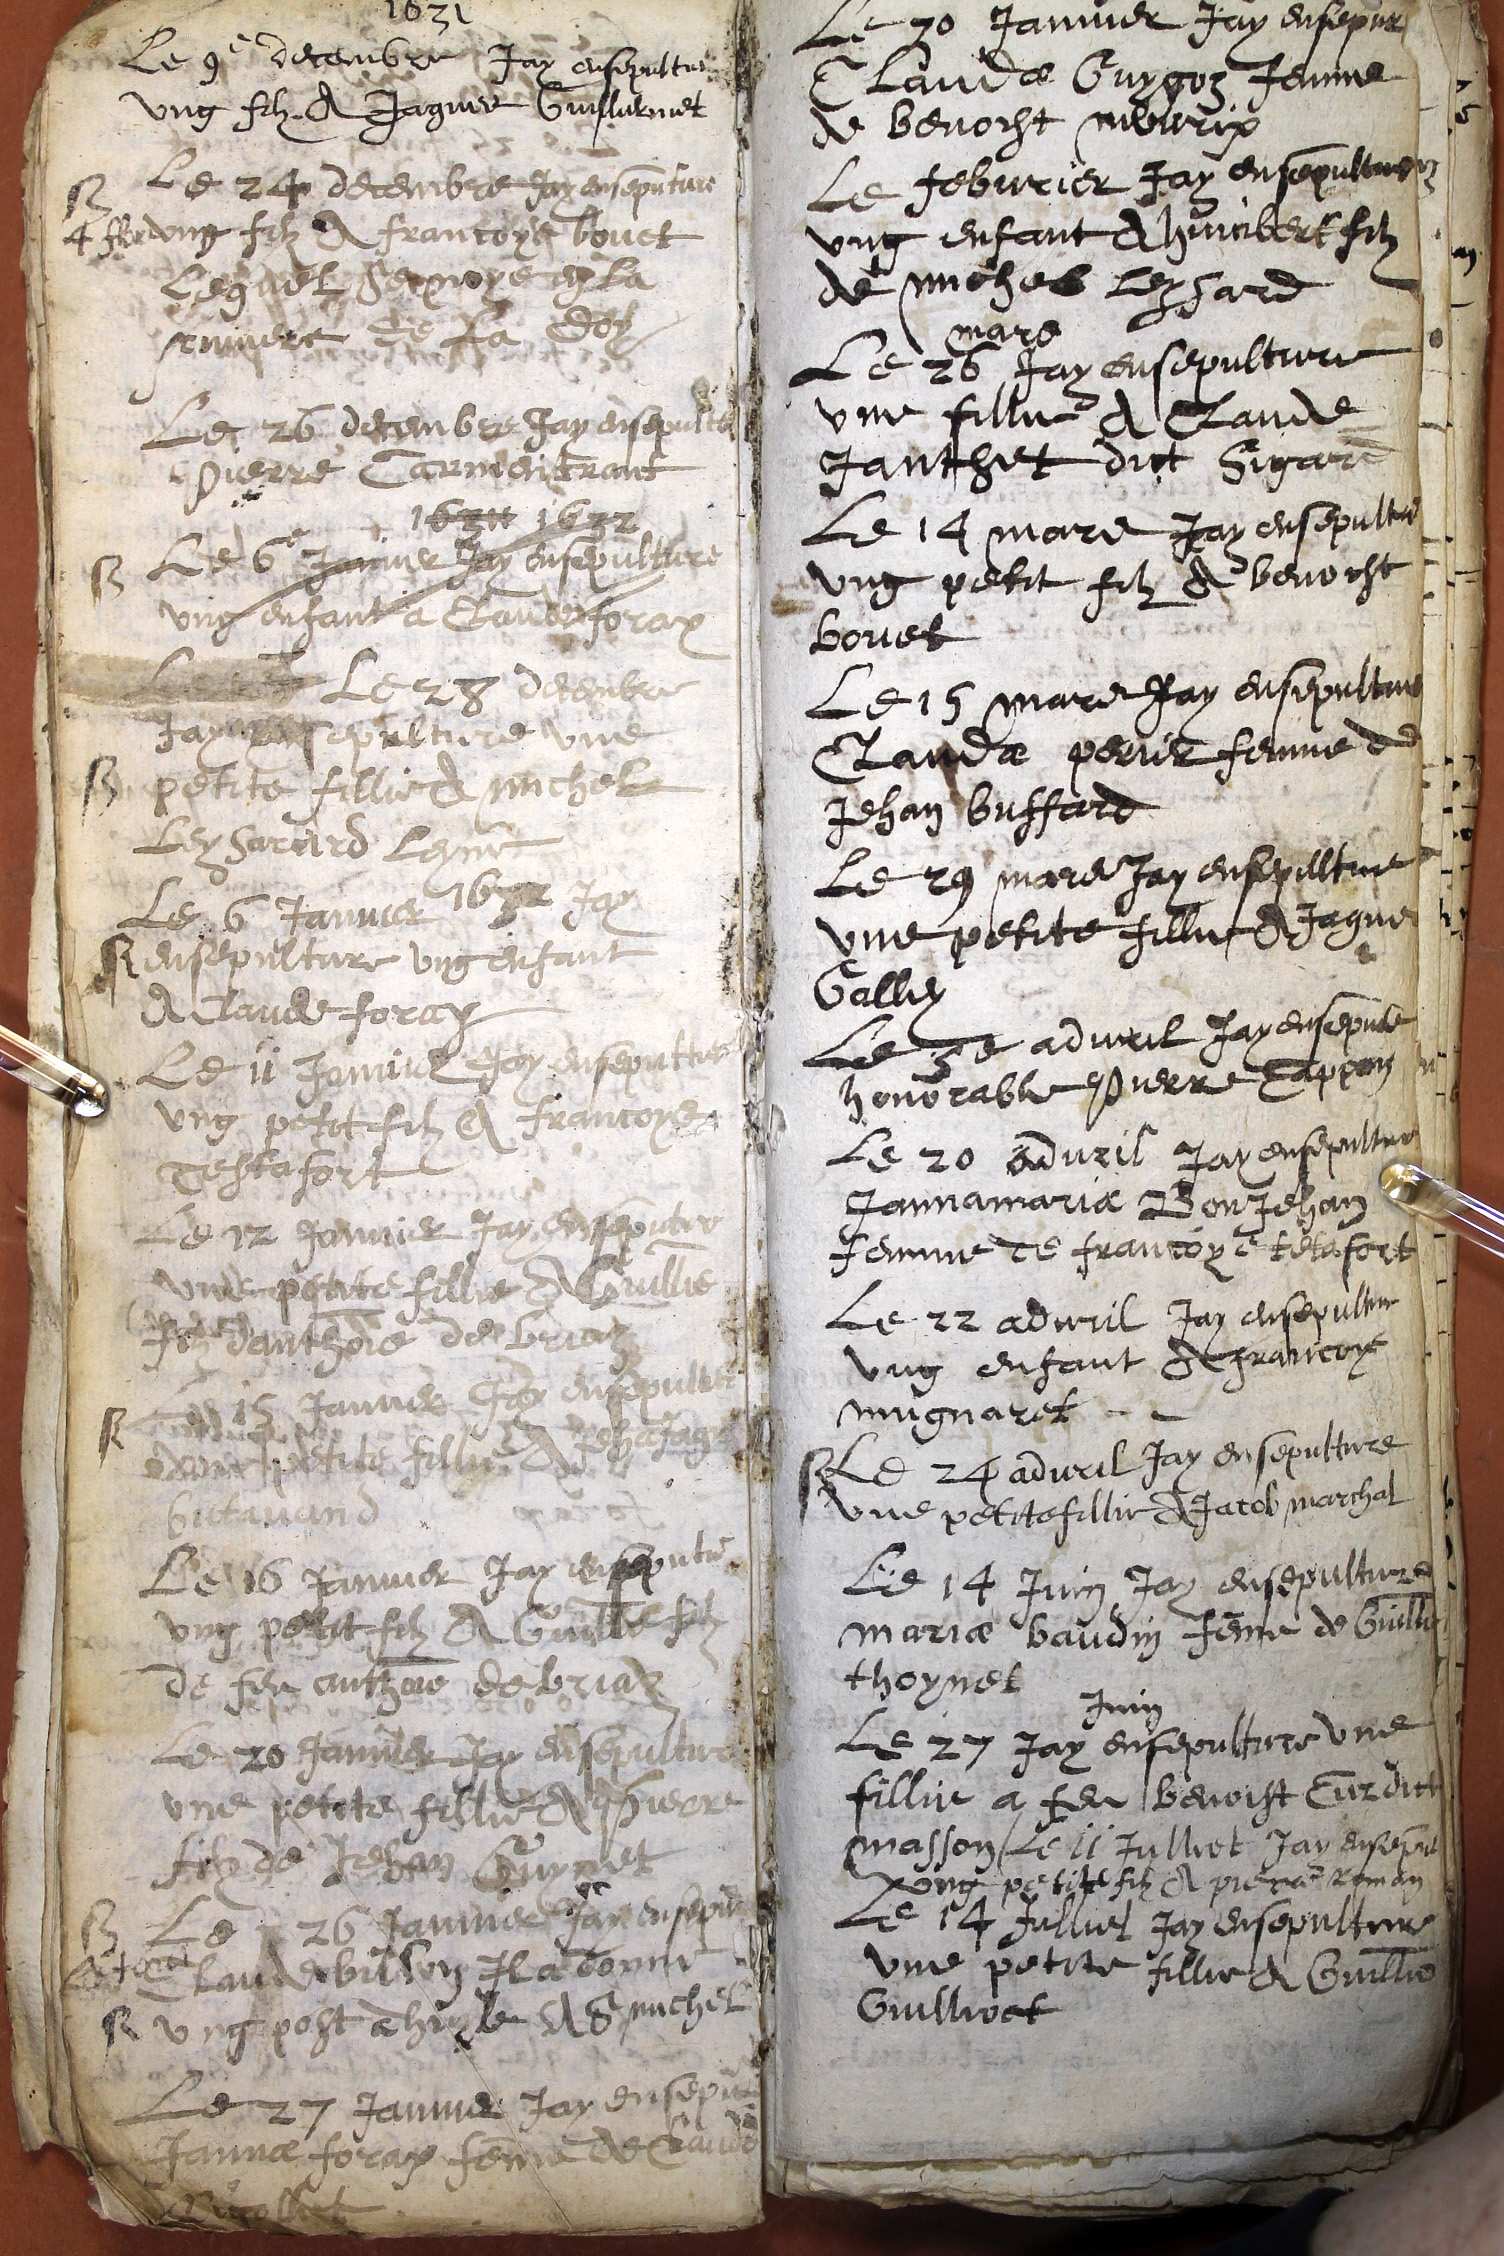 1631
Le 9e decembre Jay ensepultur
ung filz A Jaques Guilliermet
Le 24 decembre Jay ensepulture
ung filz A francoys bouet
Lequel se noye en la
riuiere de La
Le 26 decembre Jay ensepulture
Pierre Carmentrant
1632
Le 6e Januier Jay ensepulture
ung enfant a Claude forax
Le 28 decembre
Jay ensepulture une
petite fillie A michel
Leysard
Le 6 Januier 1632 Jay
ensepulture ung enfant
A Claude forax
Le 11 Januier Jay ensepulture
ung petit filz A francoys
Testafort
Le 12 Januier Jay ensepultur
une petite fillie A Guillie
filz danthoie de briaz
15 Januier Jay ensepultur
petite fillie A
Le 16 Januier Jay ensepultur
ung petit filz A Guillie filz
de feu anthoie de briaz
Le 20 Januier Jay ensepulture
une petite fillie A Pierre
filz de Jehan Guynet
Le 26 Januier Jay ensepult
Claude Il a donne
ung post A St michel
Le 27 Januie Jay ensepul
Janna forax feme de Claude
Le 30 Januier Jay ensepur
Clauda Guygoz femme
de benoist meurix
Le feburier Jay ensepulture
ung enfant A humbert filz
de michel Leysard
mars
Le 26 Jay ensepulture
une fillie A Claude
Janthet dict Sigard
Le 14 mars Jay ensepultur
ung petit filz A benoist
bouet
Le 15 mars Jay ensepulture
Clauda perier femme de
Jehan buffard
Le 29 mars Jay ensepullture
une petite fillie A Jaques
Galliey
Le 3e apuril Jay ensepule
honorable Pierre Cappon
Le 20 aduril Jay ensepultur
Jannamaria Bonjehan
femme de francoys tetafort
Le 22 aduril Jay ensepultur
ung enfant A francoys
mugnaret
Le 24 aduril Jay ensepulture
une petite fillie A Jacob marchal
Le 14 Juin Jay ensepulture
maria baudin feme de Guillie
thoynet
Juin
Le 27 Jay ensepulture une
fillie a feu benoist Cur dict
masson Le 11 Julliet Jay ensepul
ung petit filz A pierre Roman
Le 14 Julliet Jay ensepulture
une petite fillie A Guillie
Guilliot